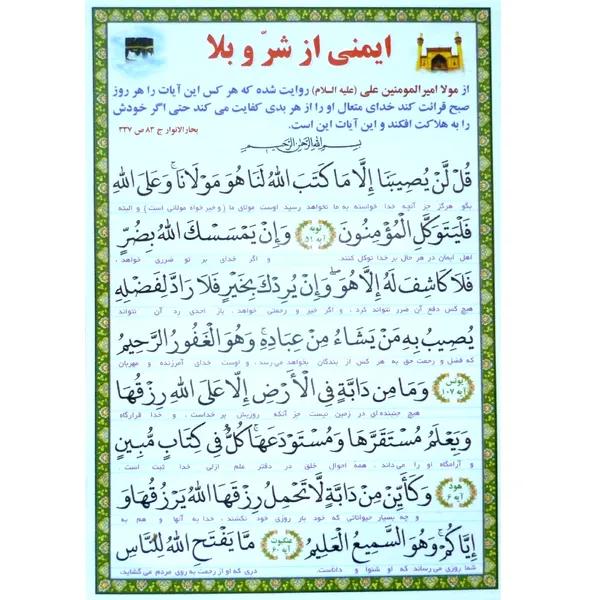 ایمنی از شرّ و بلا
از مولا امیرالمومنین علی (علیه السلام) روایت شده که هر کس این آیات را هر روز
صبح قرائت کند خدای متعال او را از هر بدی کفایت می کند حتی اگر خودش
را به هلاکت افکند و این آیات این است.
بحارالانوار ج ۸۳ ص ۳۳۷
بسم الله الرحمن الرحیم
قُل لَّن يُصِيبَنَا إِلَّا مَا كَتَبَ اللهُ لَنَا هُوَ مَوْلَانَا وَعَلَى اللهِ
بگو هرگز جز آنچه خدا خواسته به ما نخواهد رسید اوست مولای ما (و خیر خواه مولائی است) و البته
فَلْيَتَوَكَّلِ الْمُؤْمِنُونَ توبه آیه ۵۱ وَإِن يَمْسَسْكَ اللهُ بِضُرٍّ
اهل ایمان در هر حال بر خدا توکل کنند. و اگر خدای بر تو ضرری خواهد،
فَلَا كَاشِفَ لَهُ إِلَّا هُوَ وَإِن يُرِدْكَ بِخَيْرٍ فَلَا رَادَّ لِفَضْلِهِ
هیچ کس دفع آن ضرر نتواند کرد، و اگر خیر و رحمتی خواهد، باز احدی رد آن نتواند
يُصِيبُ بِهِ مَن يَشَاءُ مِنْ عِبَادِهِ وَهُوَ الْغَفُورُ الرَّحِيمُ
که فضل و رحمت حق به هر کس از بندگان بخواهد می رسد، و اوست خدای آمرزنده و مهربان
یونس آیه ۱۰۷ وَمَا مِن دَابَّةٍ فِي الْأَرْضِ إِلَّا عَلَى اللهِ رِزْقُهَا
هیچ جنبنده ای در زمین نیست جز آنکه روزیش بر خداست، و خدا قرارگاه
وَيَعْلَمُ مُسْتَقَرَّهَا وَمُسْتَوْدَعَهَا كُلٌّ فِي كِتَابٍ مُّبِينٍ
و آرامگاه او را می داند. همه احوال خلق در دفتر علم ازلی خدا ثبت است.
هود آیه ۶ وَكَأَيِّن مِن دَابَّةٍ لَّا تَحْمِلُ رِزْقَهَا اللهُ يَرْزُقُهَا وَ
و چه بسیار حیواناتی که خود بار روزی خود نکشند، خدا به آنها و هم به
إِيَّاكُمْ وَهُوَ السَّمِيعُ الْعَلِيمُ عنکبوت آیه ۶۰ مَا يَفْتَحِ اللهُ لِلنَّاسِ
شما روزی می رساند که او شنوا و داناست. دری که او از رحمت به روی مردم می گشاید،